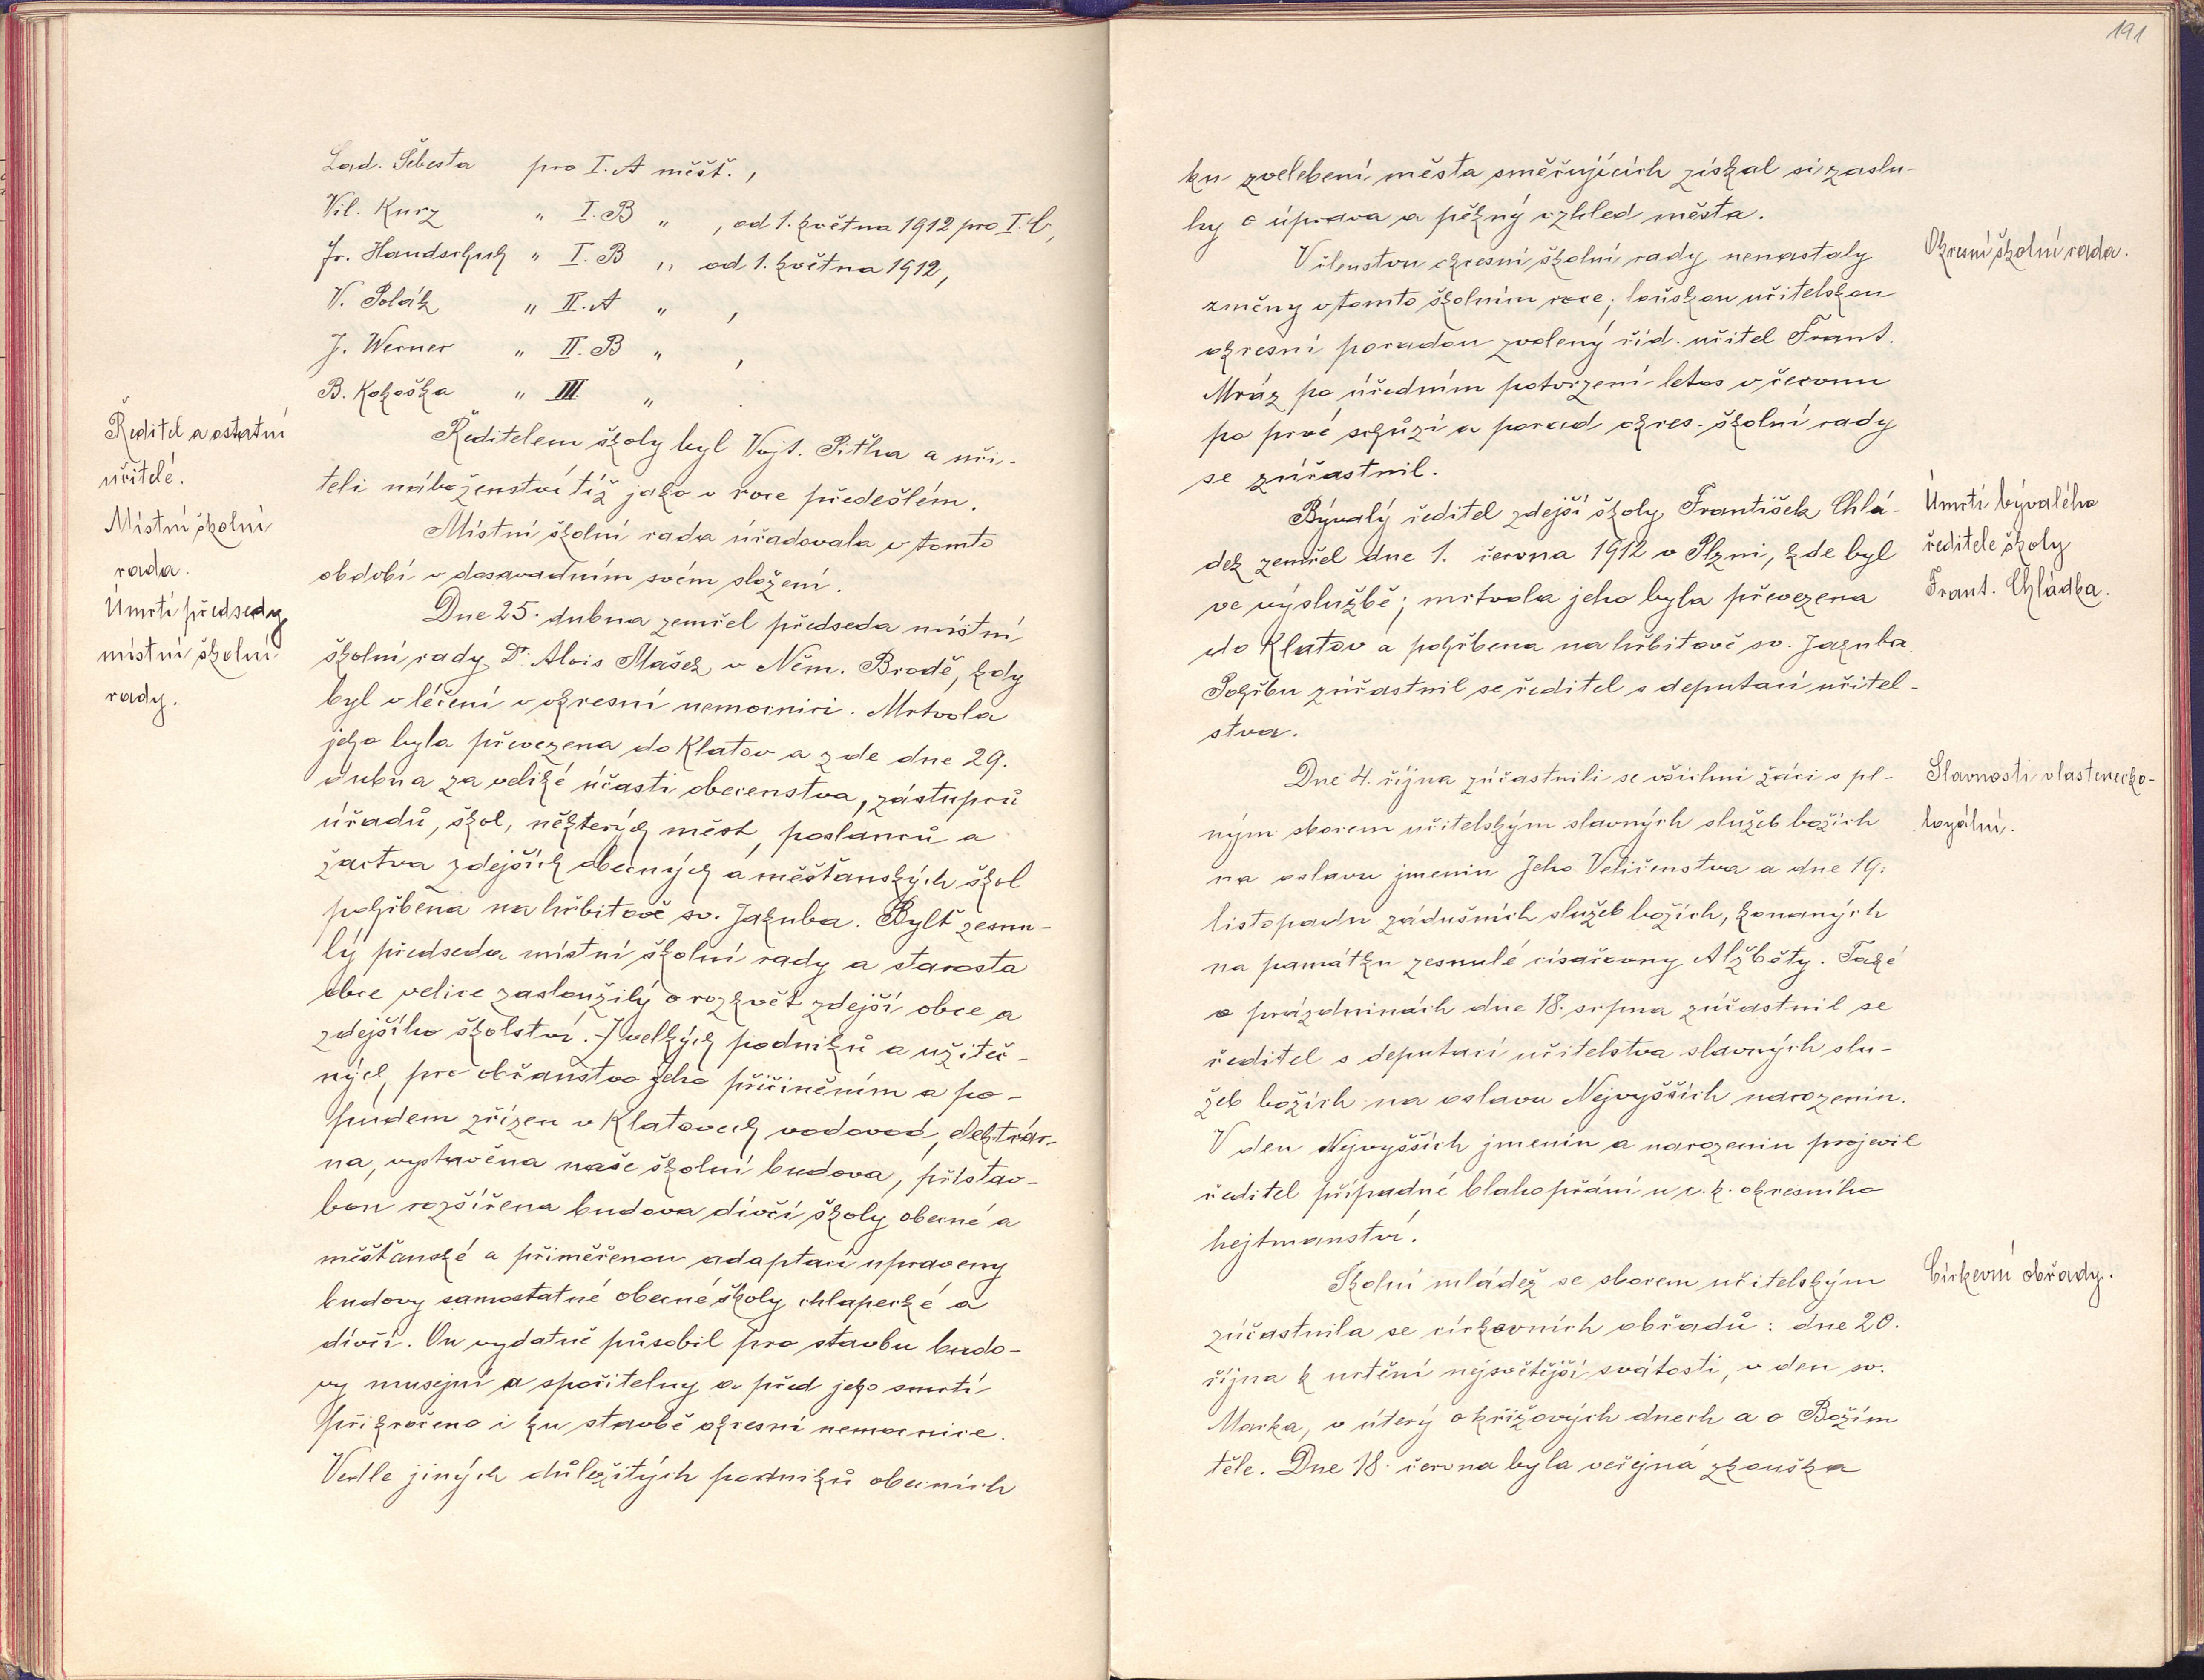 Lad. Šebesta pro I. A měšť.,
Vil. Kurz " I. B " , od 1. května 1912 pro I. C,
Fr. Handschuh " I. B " od 1. května 1912,
V. Polák " II. A " ,
J. Werner " II. B " ,
B. Kokoška " III. " .
Ředitel a ostatní
učitelé.
Ředitelem školy byl Vojt. Pitlha a uči-
teli náboženství tíž jako v roce předešlém.
Místní školní
rada.
Místní školní rada úřadovala v tomto
období v dosavadním svém složení.
Úmrtí předsedy
místní školní
rady.
Dne 25. dubna zemřel předseda místní
školní rady Dr. Alois Mašek v Něm. Brodě, kdy
byl v léčení v okresní nemocnici. Mrtvola
jeho byla převezena do Klatov a zde dne 29.
dubna za veliké účasti obecenstva, zástupců
úřadů, škol, některých měst, poslanců a
žactva zdejších obecných a měšťanských škol
pohřbena na hřbitově sv. Jakuba. Bylť zesnu-
lý předseda místní školní rady a starosta
obce velice zasloužilý o rozkvět zdejší obce a
zdejšího školství. Z velkých podniků a užiteč-
ných pro občanstvo jeho přičiněním a po-
pudem zřízen v Klatovech vodovod, elektrár-
na, vystavěna naše školní budova, přístav-
bou rozšířena budova dívčí školy obecné a
měšťanské a přiměřenou adaptací upraveny
budovy samostatné obecné školy chlapecké a
dívčí. On vydatně působil pro stavbu budo-
vy musejní a spořitelny a před jeho smrtí
přikročeno i ku stavbě okresní nemocnice.
Vedle jiných důležitých podniků obecních
191
ku zvelebení města směřujících získal si zaslu-
hy o úpravu a pěkný vzhled města.
Okresní školní rada.
V členstvu okresní školní rady nenastaly
změny v tomto školním roce; loňskou učitelskou
okresní poradou zvolený říd. učitel Frant.
Mráz po úředním potvrzení letos v červnu
po prvé schůzí a porad okres. školní rady
se zúčastnil.
Úmrtí bývalého
ředitele školy
Frant. Chládka.
Bývalý ředitel zdejší školy František Chlá-
dek zemřel dne 1. června 1912 v Plzni, kde byl
ve výslužbě; mrtvola jeho byla převezena
do Klatov a pohřbena na hřbitově sv. Jakuba.
Pohřbu zúčastnil se ředitel s deputací učitel-
stva.
Slavnosti vlastenecko-
loyální.
Dne 4. října zúčastnili se všichni žáci s pl-
ným sborem učitelským slavných služeb božích
na oslavu jmenin Jeho Veličenstva a dne 19.
listopadu zádušních služeb božích, konaných
na památku zesnulé císařovny Alžběty. Také
o prázdninách dne 18. srpna zúčastnil se
ředitel s deputací učitelstva slavných slu-
žeb božích na oslavu Nejvyšších narozenin.
V den Nejvyšších jmenin a narozenin projevil
ředitel případné blahopřání u c. k. okresního
hejtmanství.
Církevní obřady.
Školní mládež se sborem učitelským
zúčastnila se církevních obřadů: dne 20.
října k uctění nejsvětější svátosti, v den sv.
Marka, v úterý o křížových dnech a o Božím
těle. Dne 18. června byla veřejná zkouška